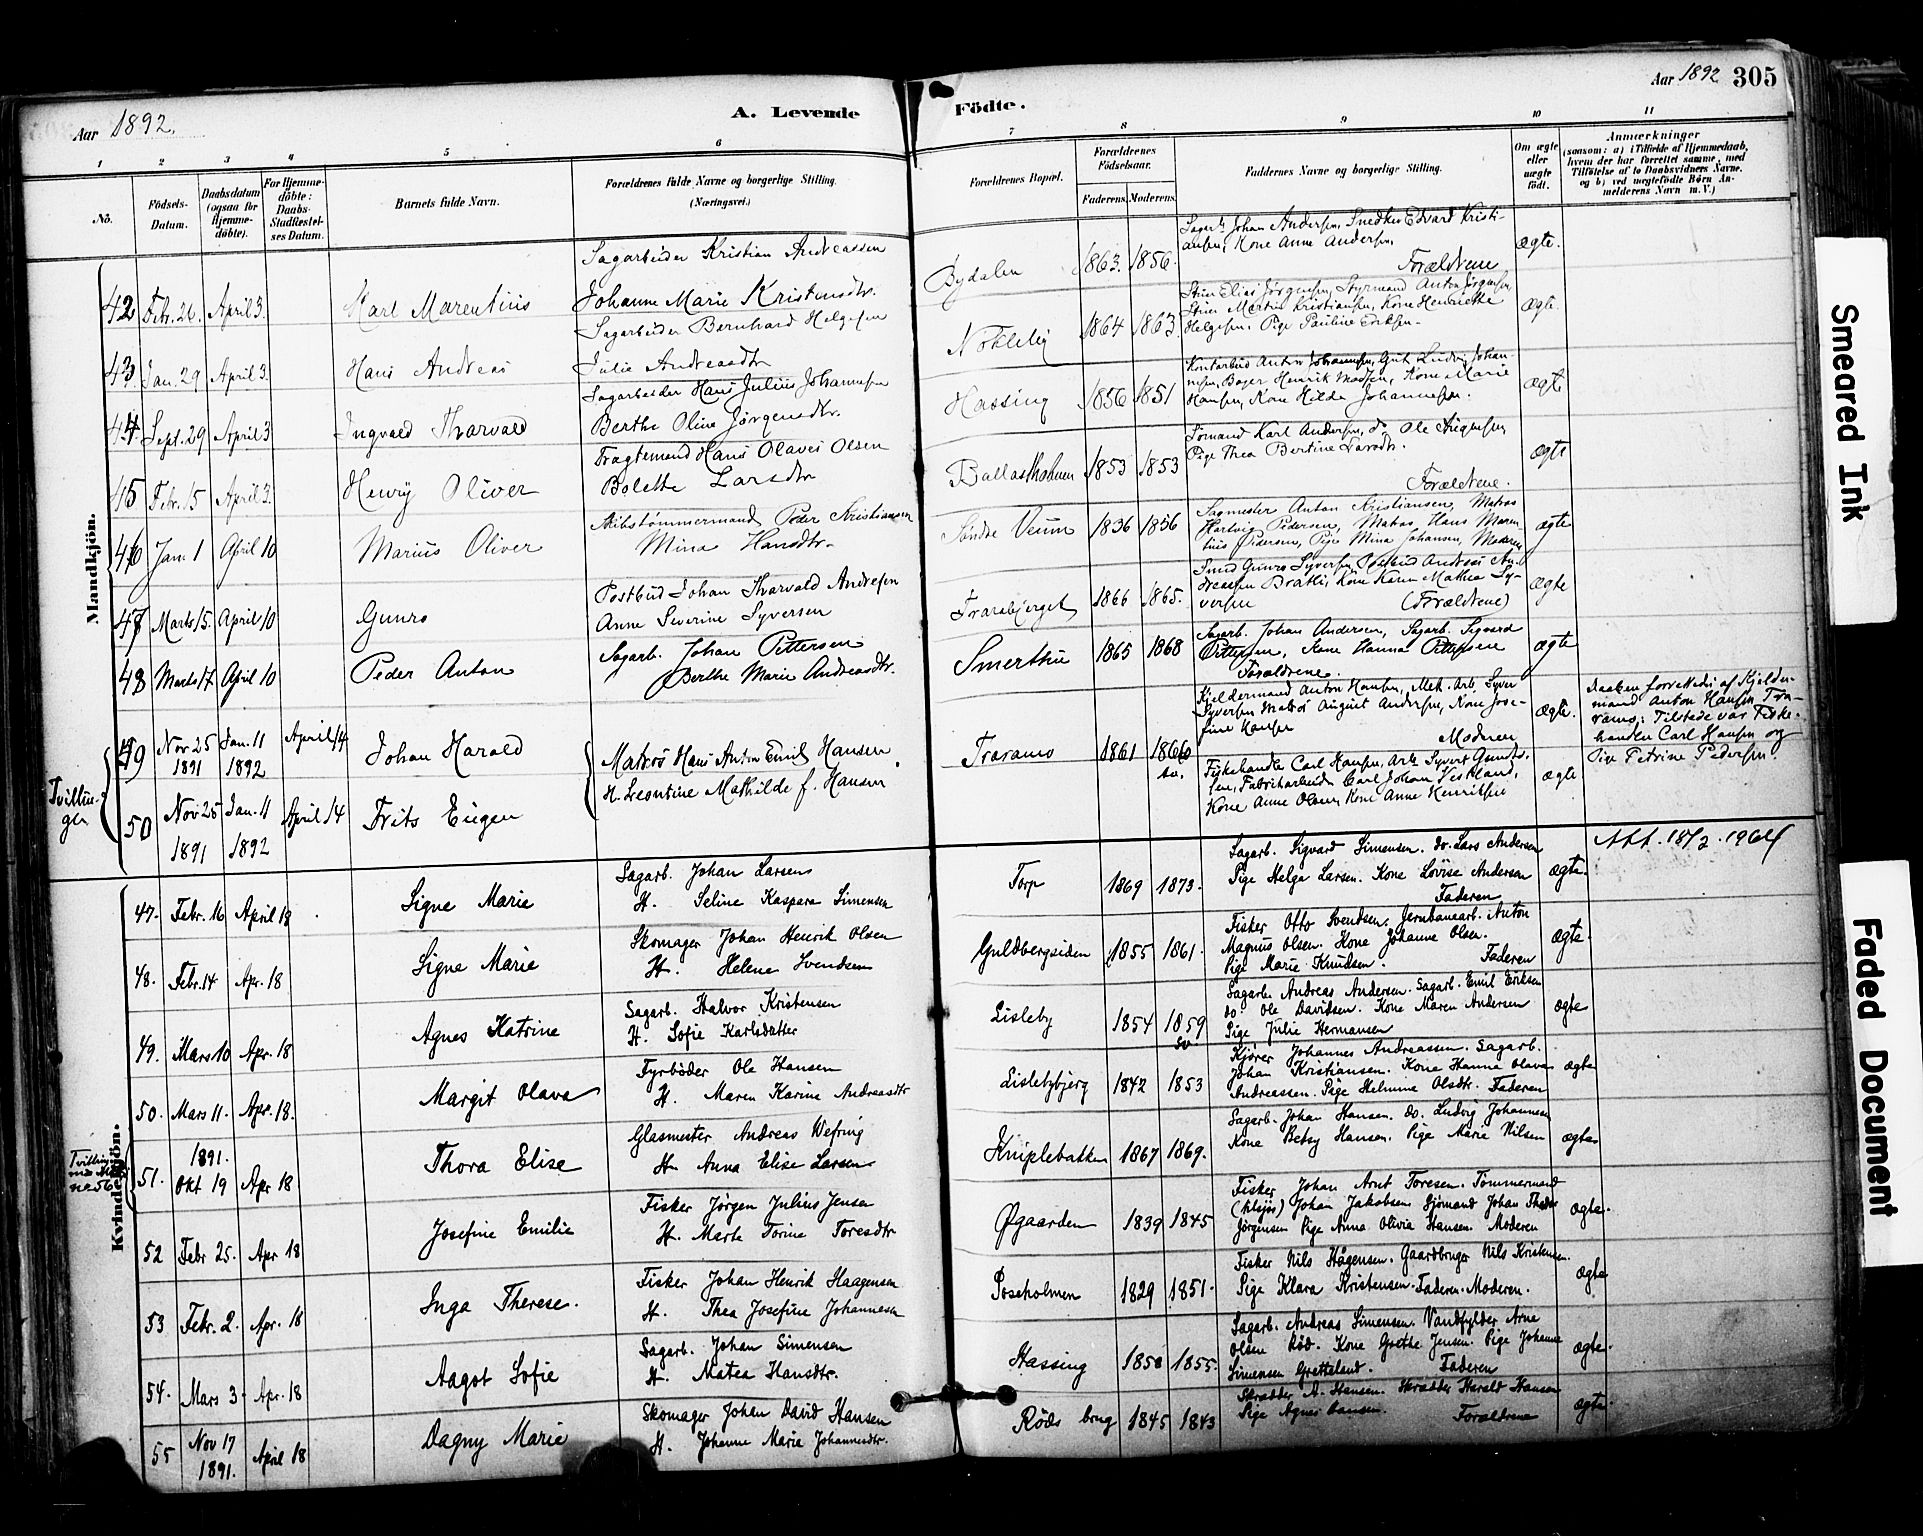 Aar 1892.
A. Levende
Födte.
Aar 1892 305
1 2 3 4 5 6 7 8 9 10 11
Nº.
Födsels-Datum.
Daabsdatum (ogsaa for Hjemme-döbte).
For Hjemme-döbte: Daabs-Stadfæstel-ses Datum.
Barnets fulde Navn.
Forældrenes fulde Navne og borgerlige Stilling.
(Næringsvei.)
Forældrenes Bopæl.
Forældrenes Födselsaar.
Faderens. Moderens.
Faddernes Navne og borgerlige Stilling.
Om ægte eller uægte födt.
Anmærkninger
(saasom: a) i Tilfælde af Hjemmedaab,
hvem der har forrettet samme, med
Tilföielse af to Daabsvidners Navne.
og b) ved uægtefödte Börn An-
melderens Navn m. V.)
Mandkjön.
42 Febr. 26. April 3. Karl Marentius
Sagarbeider Kristian Andreassen
Johanne Marie Kristensdtr.
Bydalen 1863. 1856.
Sagarb. Johan Andersen, Snedker Edvard Kristi-
ansen, Kone Anne Andersen,
Forældrene
ægte.
43 Jan. 29 April 3. Hans Andreas
Sagarbeider Bernhard Helgesen
Julie Andreasdtr
Nökleby 1864 1863.
Stuer Elias Jørgensen, Styrmand Anton Jörgensen,
Stuer Martin Kristiansen, Kone Henriette
Helgesen, Pige Pauline Eriksen.
ægte.
44 Sept. 29 April 3 Ingvald Tharvald
Sagarbeider Hans Julius Johannesen
Berthe Oline Jørgensdtr.
Hassing 1856 1851
Kontorbud Anton Johannesen, Gut Ludvig Johan-
nesen, Bager Henrik Madsen, Kone Marie
Hansen, Kone Hilda Johannesen.
ægte
45 Febr. 15 April 3. Henry Oliver
Fragtemand Hans Olaves Olsen
Bolette Larsdtr
Ballastholmen 1853 1853
Sømand Karl Andersen, do Ole
Pige Thea Bertine Larsdtr.
Forældrene.
ægte
46 Jan. 1 April 10 Marius Oliver
Skibstømmermand Peder Kristiansen
Mina Hansdtr.
Søndre Veum 1836 1856
Sagmester Anton Kristiansen, Matros
Hartvig Pedersen, Matros Hans Maren
tius Pedersen, Pige Mina Johansen, Moderen
ægte
47 Marts 15. April 10 Gunro
Postbud Johan Tharvald Andresen
Anne Severine Syversen
Trarabjerget 1866 1865.
Smed Gunro Syversen, Postbud Andreas An-
dreassen Bratli, Kone Karen Mathea Sy-
versen (Forældrene)
ægte
48 Marts 17 April 10 Peder Anton
Sagarb. Johan Pettersen
Berthe Marie Andreasdtr.
Smerthu 1865 1868
Sagarb. Johan Andersen, Sagarb. Sigvard
Pettersen, Kone Hanna Pettersen
Forældrene.
ægte
Tvillin-
ger
49 Nov. 25 1891 Jan. 11 1892 April 14 Johan Harald
Matros Hans Anton Emil Hansen
H. Leontine Mathilde f. Hansen
Traraues 1861 1866 sv.
Kjeldermand Anton Hansen, Mek. Arb. Syver
Syversen Matros August Andersen, Kone Jose-
fine Hansen
Moderen
ægte.
Daaben forrettedes af Kjelder-
mand Anton Hansen Tra-
raues; Tilstede var Fiske-
handler Carl Hansen og
Pige Petrine Pedersen.
50 Nov. 25 1891 Jan. 11 1892 April 14 Frits Eugen
Fiskehandler Carl Hansen, Arb. Syvert Gundt-
sen, Fabrikarbeid. Carl Johan Vestland,
Kone Anne Olsen, Kone Anne Henriksen
ægte
Att. 18/2. 1964
Kvindekjön.
47. Febr. 16 April 18 Signe Marie
Sagarb. Johan Larsen
H. Seline Kaspara Simensen
Torp 1869 1873.
Sagarb. Sigvard Simensen. do. Lars Andersen
Pige Helga Larsen. Kone Lovise Andersen
Faderen
ægte.
48. Febr. 14 Apr. 18 Signe Marie
Skomager Johan Henrik Olsen
H. Helene Svendsen
Guldbergsiden 1855 1861.
Fisker Otto Svendsen, Jernbanearb. Anton
Magnus Olsen. Kone Johanne Olsen.
Pige Marie Knudsen. Faderen
ægte.
49. Mars 10 Apr. 18 Agnes Katrine
Sagarb. Halvor Kristensen
H. Sofie Karlsdatter
Lisleby 1854 1859 sv.
Sagarb. Andreas Andersen. Sagarb. Emil Eriksen
do. Ole Davidsen. Kone Maren Andersen
Pige Julie Hermansen
ægte
50. Mars 11. Apr. 18. Margit Olava
Fyrböder Ole Hansen
H. Maren Karine Andreasdtr
Lislebybjerg 1842 1853
Kjører Johannes Andreassen. Sagarb.
Johan Kristiansen. Kone Hanna Olava
Andreassen. Pige Helmine Olsdtr. Faderen
ægte
51. 1891. Okt 19 Apr 18 Thora Elise
Glasmester Andreas Wefring
H. Anna Elise Larsen
Kniplebakken 1867 1869.
Sagarb. Johan Hansen. do. Ludvig Johannesen
Kone Betsy Hansen. Pige Marie Nilsen
ægte
52 Febr 25. Apr 18 Josefine Emilie
Fisker Jørgen Julius Jensen
H. Marte Torine Toresdtr
Øgaarden 1839 1845
Fisker Johan Arnt Toresen. Tømmermand
Johan Jakobsen Sjömand Johan
Jörgensen Pige Anna Olivia Hansen. Moderen
ægte.
53 Febr. 2. Apr. 18 Inga Therese.
Fisker Johan Henrik Haagensen
H. Thea Josefine Johannesen
Poseholmen 1829 1851.
Fisker Nils Hågensen. Gaardbruger Nils Kristensen.
Pige Klara Kristensen. Faderen. Moderen.
ægte
54. Mars 3. Apr. 18 Aagot Sofie
Sagarb. Johan Simensen
H. Matea Hansdtr.
Hassing 1858 1855.
Sagarb. Andreas Simensen. Vandfylder Arne
Olsen Röd. Kone Grethe Jensen. Pige Johanne
Simensen Grætteland. Faderen
ægte.
55 Nov 17 1891. April 18 Dagny Marie
Skomager Johan David Hansen
H. Johanne Marie Johannesdtr.
Röds brug 1845 1843
Skrædder A. Hansen. Skrædder Harald Hansen
Pige Agnes Hansen. Forældrene
ægte.
Smeared Ink
Faded Document